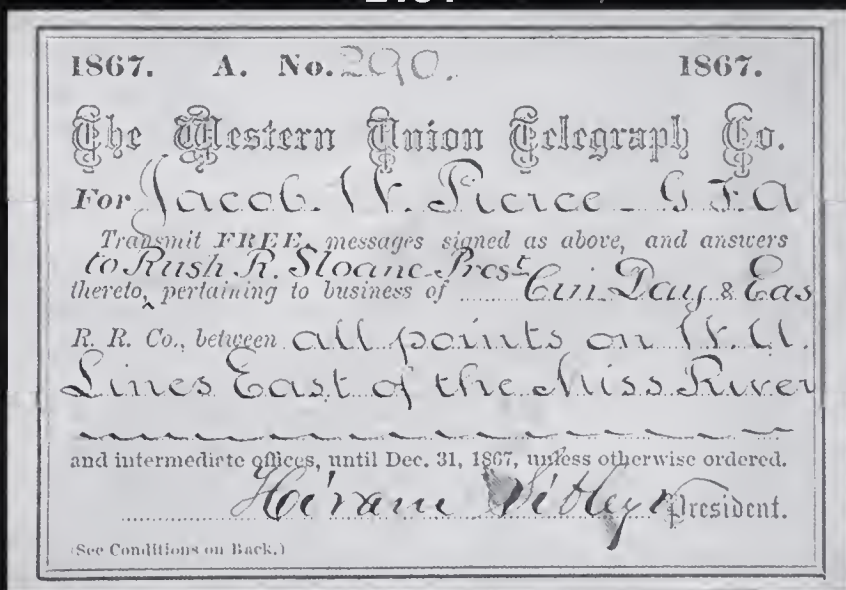 1867. A. No. 290. 1867.
The Western Union Telegraph Co.
For Jacob. W. Pierce - G F A
Transmit FREE, messages signed as above, and answers
to Rush R. Sloane Prest
thereto, ‸ pertaining to business of Cin Day & Eas
R. R. Co., between all points on W. U.
Lines East of the Miss River
and intermediete offices, until Dec. 31, 1867, unless otherwise ordered.
Hiram Sibley President.
(See Conditions on Back.)